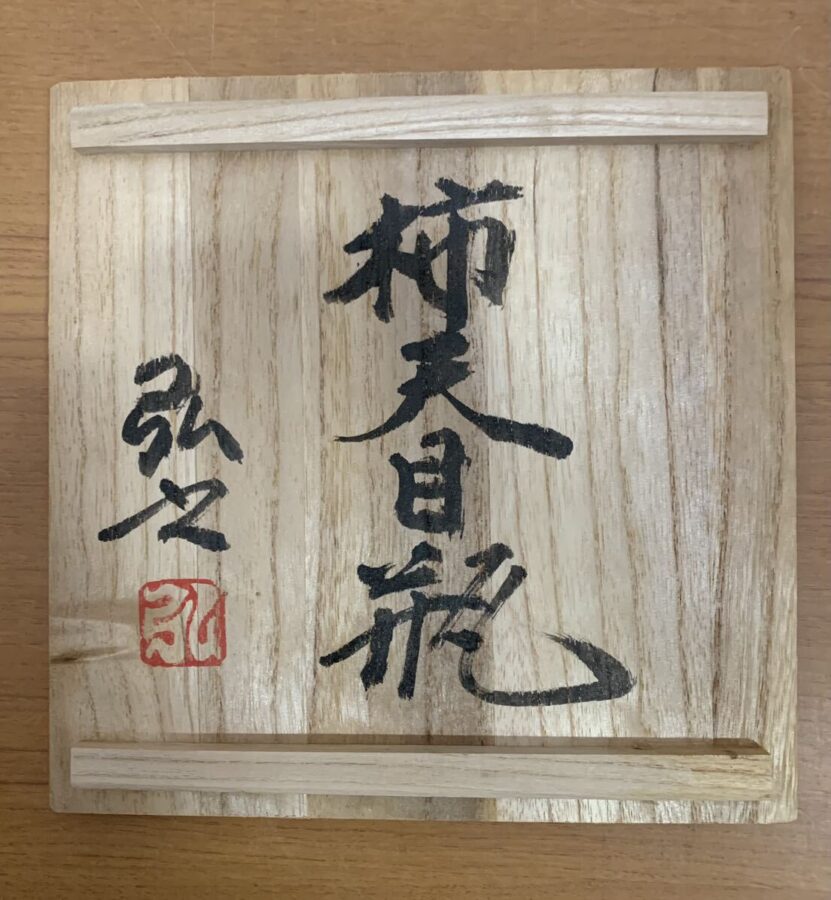 柿天目瓶
弘之
弘